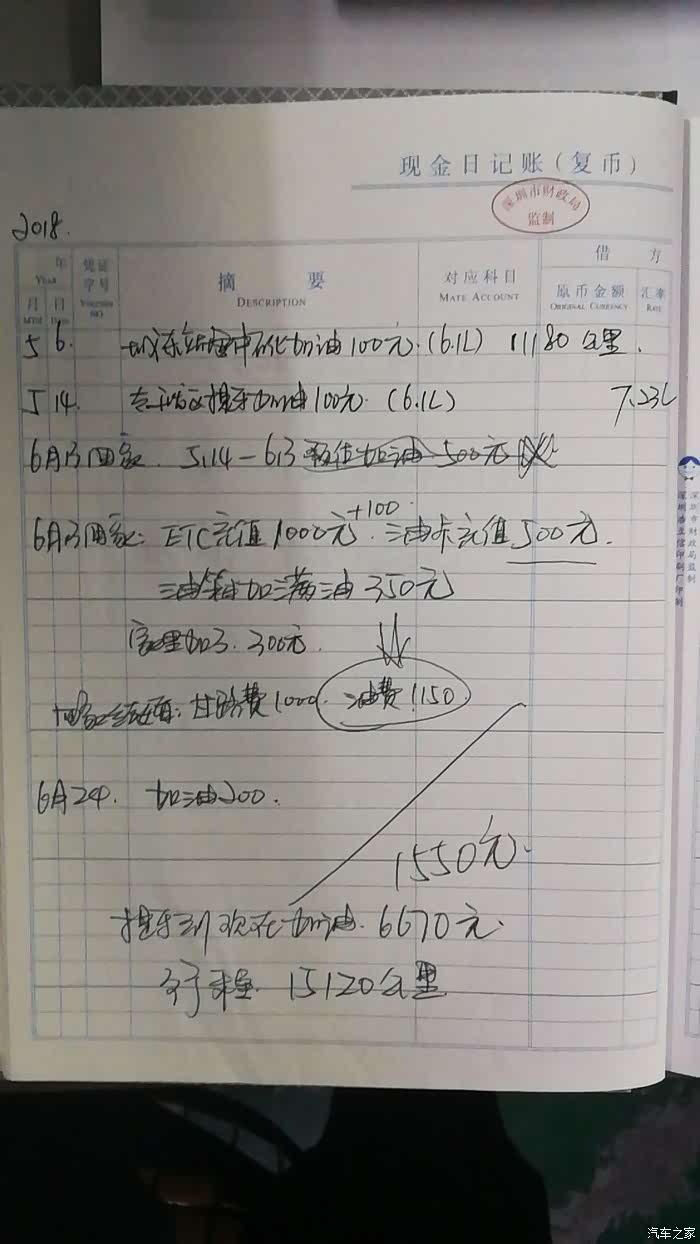 现金日记账(复币)
深圳市财政局
监制
2018.
年
YEAR
凭证
字号
VOUCHER
NO
摘 要
DESCRIPTION
对应科目
MATE ACCOUNT
借 方
月
MTH
日
DATE
原币金额
ORIGINAL CURRENCY
汇率
RATE
5 6. 中石化加油100元.(6.1L) 11180公里.
5 14. 加油100元.(6.1L) 7.23L
6月13回家. 5.14-6.13 加油 500元
6月13回家: ETC充值1000元+100. 油卡充值500元.
油箱加满油350元
家里加了.300元.
过路费1000. 油费1150
6月24. 加油200.
1550元.
提车到现在加油.6670元.
行程.15120公里
深圳市财政局监制
汽车之家